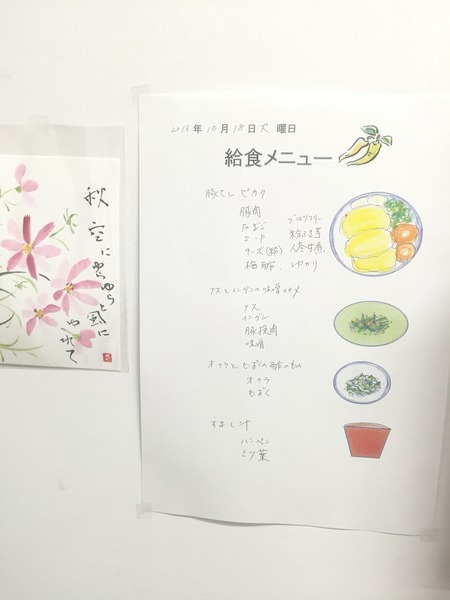 秋空に
雲ゆらと風に
ゆれて
2016年10月18日火曜日
給食メニュー
豚ヒレ ピカタ
豚肉
たまご
チーズ(粉)
梅酢
ブロッコリー
粉ふき芋
人参甘煮
ゆかり
ナスとインゲンの味噌イタメ
ナス
インゲン
豚挽肉
味噌
オクラともずくの酢のもの
オクラ
もずく
すまし汁
ハンペン
ミツ葉